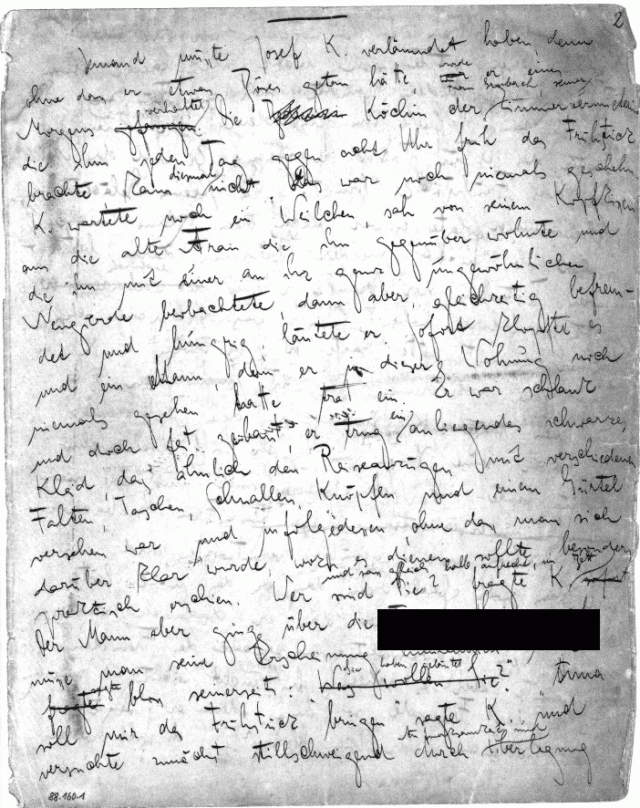 2
Jemand musste Josef K. verläumdet haben, denn
ohne dass er etwas Böses getan hätte, wurde er eines
Morgens verhaftet. Die Köchin der Zimmervermieterin
die ihm jeden Tag gegen acht Uhr früh das Frühstück
brachte kam diesmal nicht. Das war noch niemals geschehn
K. wartete noch ein Weilchen, sah von seinem Kopfkissen
aus die alte Frau die ihm gegenüber wohnte und
die ihn mit einer an ihr ganz ungewöhnlichen
Neugierde beobachtete, dann aber, gleichzeitig befrem-
det und hungrig, läutete er. Sofort klopfte es
und ein Mann, den er in dieser Wohnung noch
niemals gesehen hatte trat ein. Er war schlank
und doch fest gebaut, er trug ein anliegendes schwarzes
Kleid, das ähnlich den Reiseanzügen mit verschiedenen
Falten, Taschen, Schnallen, Knöpfen und einem Gürtel
versehen war und infolgedessen, ohne dass man sich
darüber klar wurde, wozu es dienen sollte besonders
praktisch erschien. Wer sind Sie? fragte K. und sass gleich halb aufrecht im Bett
Der Mann aber ging über die
müsse man seine Erscheinung
blos seinerseits: "Sie haben geläutet?" Anna
soll mir das Frühstück bringen sagte K. und
versuchte zunächst stillschweigend durch Überlegung
88.160.1